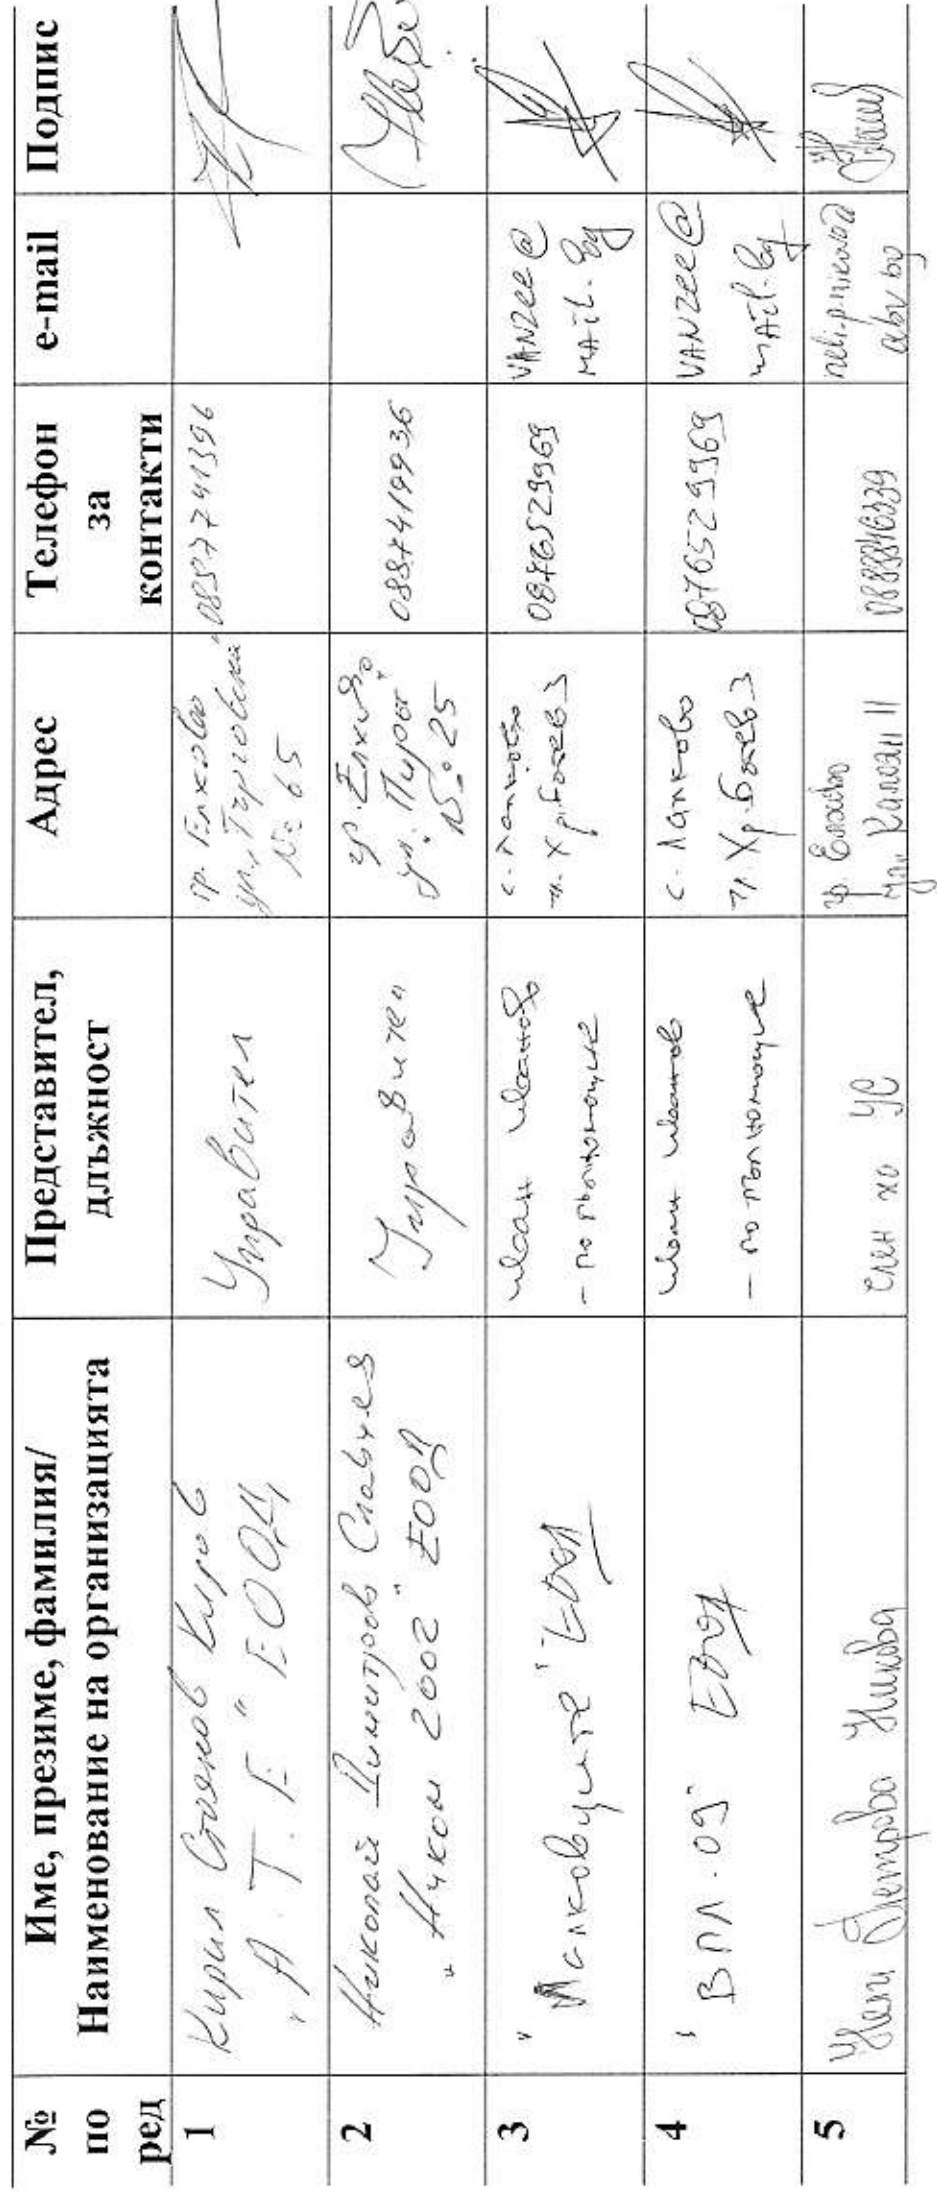 № по ред
Име, презиме, фамилия/ Наименование на организацията
Представител, длъжност
Адрес
Телефон за контакти
e-mail
Подпис
1
Кирил Стоянов Киров
"А.Т.Е" ЕООД
Управител
гр. Елхово
ул. "Търговска"
№ 65
0887741396
2
Николай Димитров Славчев
"Никол 2002" ЕООД
Управител
гр. Елхово
ул. "Пирот"
№ 25
0887419936
3
ЕООД
Иван Иванов
- по пълномощие
с.
Хр. Ботев 3
0876529969
VANZEE@
MAIL.bg
4
"ВПЛ.09" ЕООД
Иванов
- по пълномощие
с. Лалково
Хр. Ботев 3
0876529969
VANZEE@
MAIL.bg
5
Нели Петрова Николова
член на УС
гр. Елхово
ул. Калоян 11
abv bg